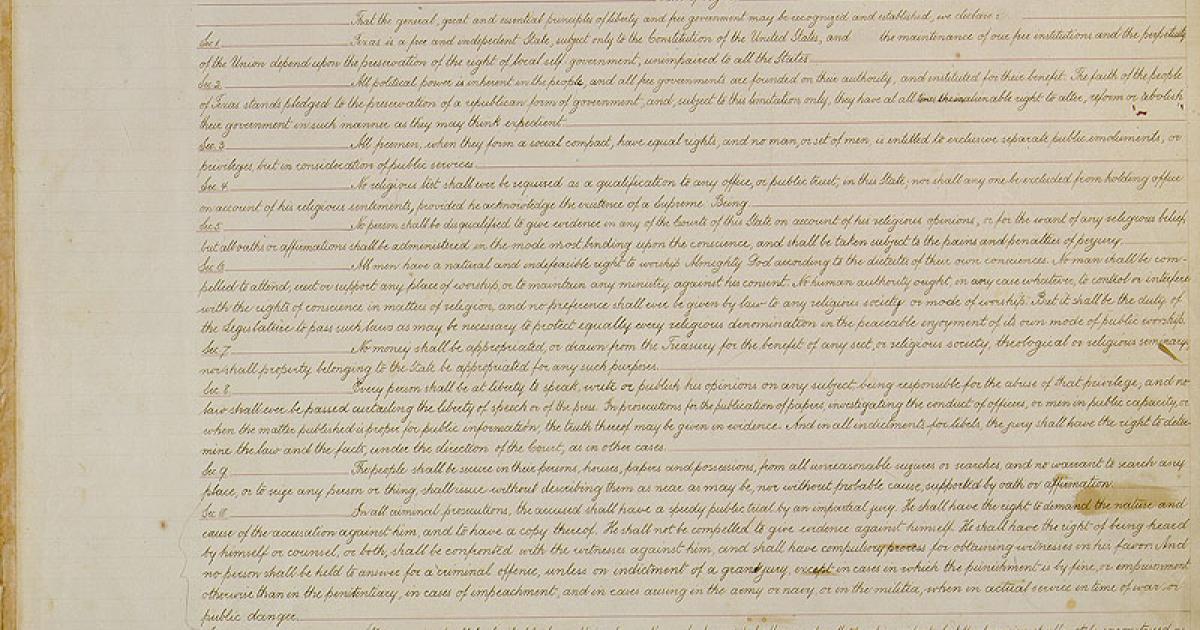 That the general, great and essential principles of liberty and free government may be recognized and established, we declare:
Sec 1 Texas is a free and indepedent State, subject only to the Constitution of the United States, and the maintenance of our free institutions and the perpetuity
of the Union depend upon the preservation of the right of local self government, unimpaired to all the States
Sec 2 All political power is inherent in the people, and all free governments are founded on their authority, and instituted for their benefit. The faith of the people
of Texas stands pledged to the preservation of a republican form of government, and, subject to this limitation only, they have at all times the inalienable right to alter, reform or abolish
their government in such manner as they may think expedient.
Sec. 3 All freemen, when they form a social compact, have equal rights, and no man, or set of men, is entitled to exclusive separate public emoluments, or
privileges, but in consideration of public services.
Sec. 4 No religious test shall ever be required as a qualification to any office, or public trust, in this State; nor shall any one be excluded from holding office
on account of his religious sentiments, provided he acknowledge the existence of a Supreme Being
Sec 5 No person shall be disqualified to give evidence in any of the Courts of this State on account of his religious opinions, or for the want of any religious belief,
but all oaths or affirmations shall be administered in the mode most binding upon the conscience, and shall be taken subject to the pains and penalties of perjury.
Sec 6 All men have a natural and indefeasible right to worship Almighty God according to the dictates of their own consciences. No man shall be com-
pelled to attend, erect or support any place of worship, or to maintain any ministry against his consent. No human authority ought, in any case whatever, to control or interfere
with the rights of conscience in matters of religion, and no preference shall ever be given by law to any religious society or mode of worship. But it shall be the duty of
the Legislature to pass such laws as may be necessary to protect equally every religious denomination in the peaceable enjoyment of its own mode of public worship.
Sec. 7 No money shall be appropriated, or drawn from the Treasury for the benefit of any sect, or religious society, theological or religious seminary,
nor shall property belonging to the State be appropriated for any such purposes.
Sec. 8. Every person shall be at liberty to speak, write or publish his opinions on any subject being responsible for the abuse of that privilege, and no
law shall ever be passed curtailing the liberty of speech or of the press. In prosecutions for the publication of papers, investigating the conduct of officers, or men in public capacity, or
when the matter published is proper for public information, the truth thereof may be given in evidence. And in all indictments for libels, the jury shall have the right to deter-
mine the law and the facts, under the direction of the Court, as in other cases.
Sec 9 The people shall be secure in their persons, houses, papers and possessions, from all unreasonable seizures or searches, and no warrant to search any
place, or to seize any person or thing, shall issue without describing them as near as may be, nor without probable cause, supported by oath or affirmation.
Sec 10 In all criminal prosecutions, the accused shall have a speedy public trial by an impartial jury. He shall have the right to demand the nature and
cause of the accusation against him, and to have a copy thereof. He shall not be compelled to give evidence against himself. He shall have the right of being heard
by himself or counsel, or both, shall be confronted with the witnesses against him, and shall have compulsory process for obtaining witnesses in his favor. And
no person shall be held to answer for a criminal offence, unless on indictment of a grand jury, except in cases in which the punishment is by fine, or imprisonment
otherwise than in the penitentiary, in cases of impeachment, and in cases arising in the army or navy, or in the militia, when in actual service in time of war or
public danger.